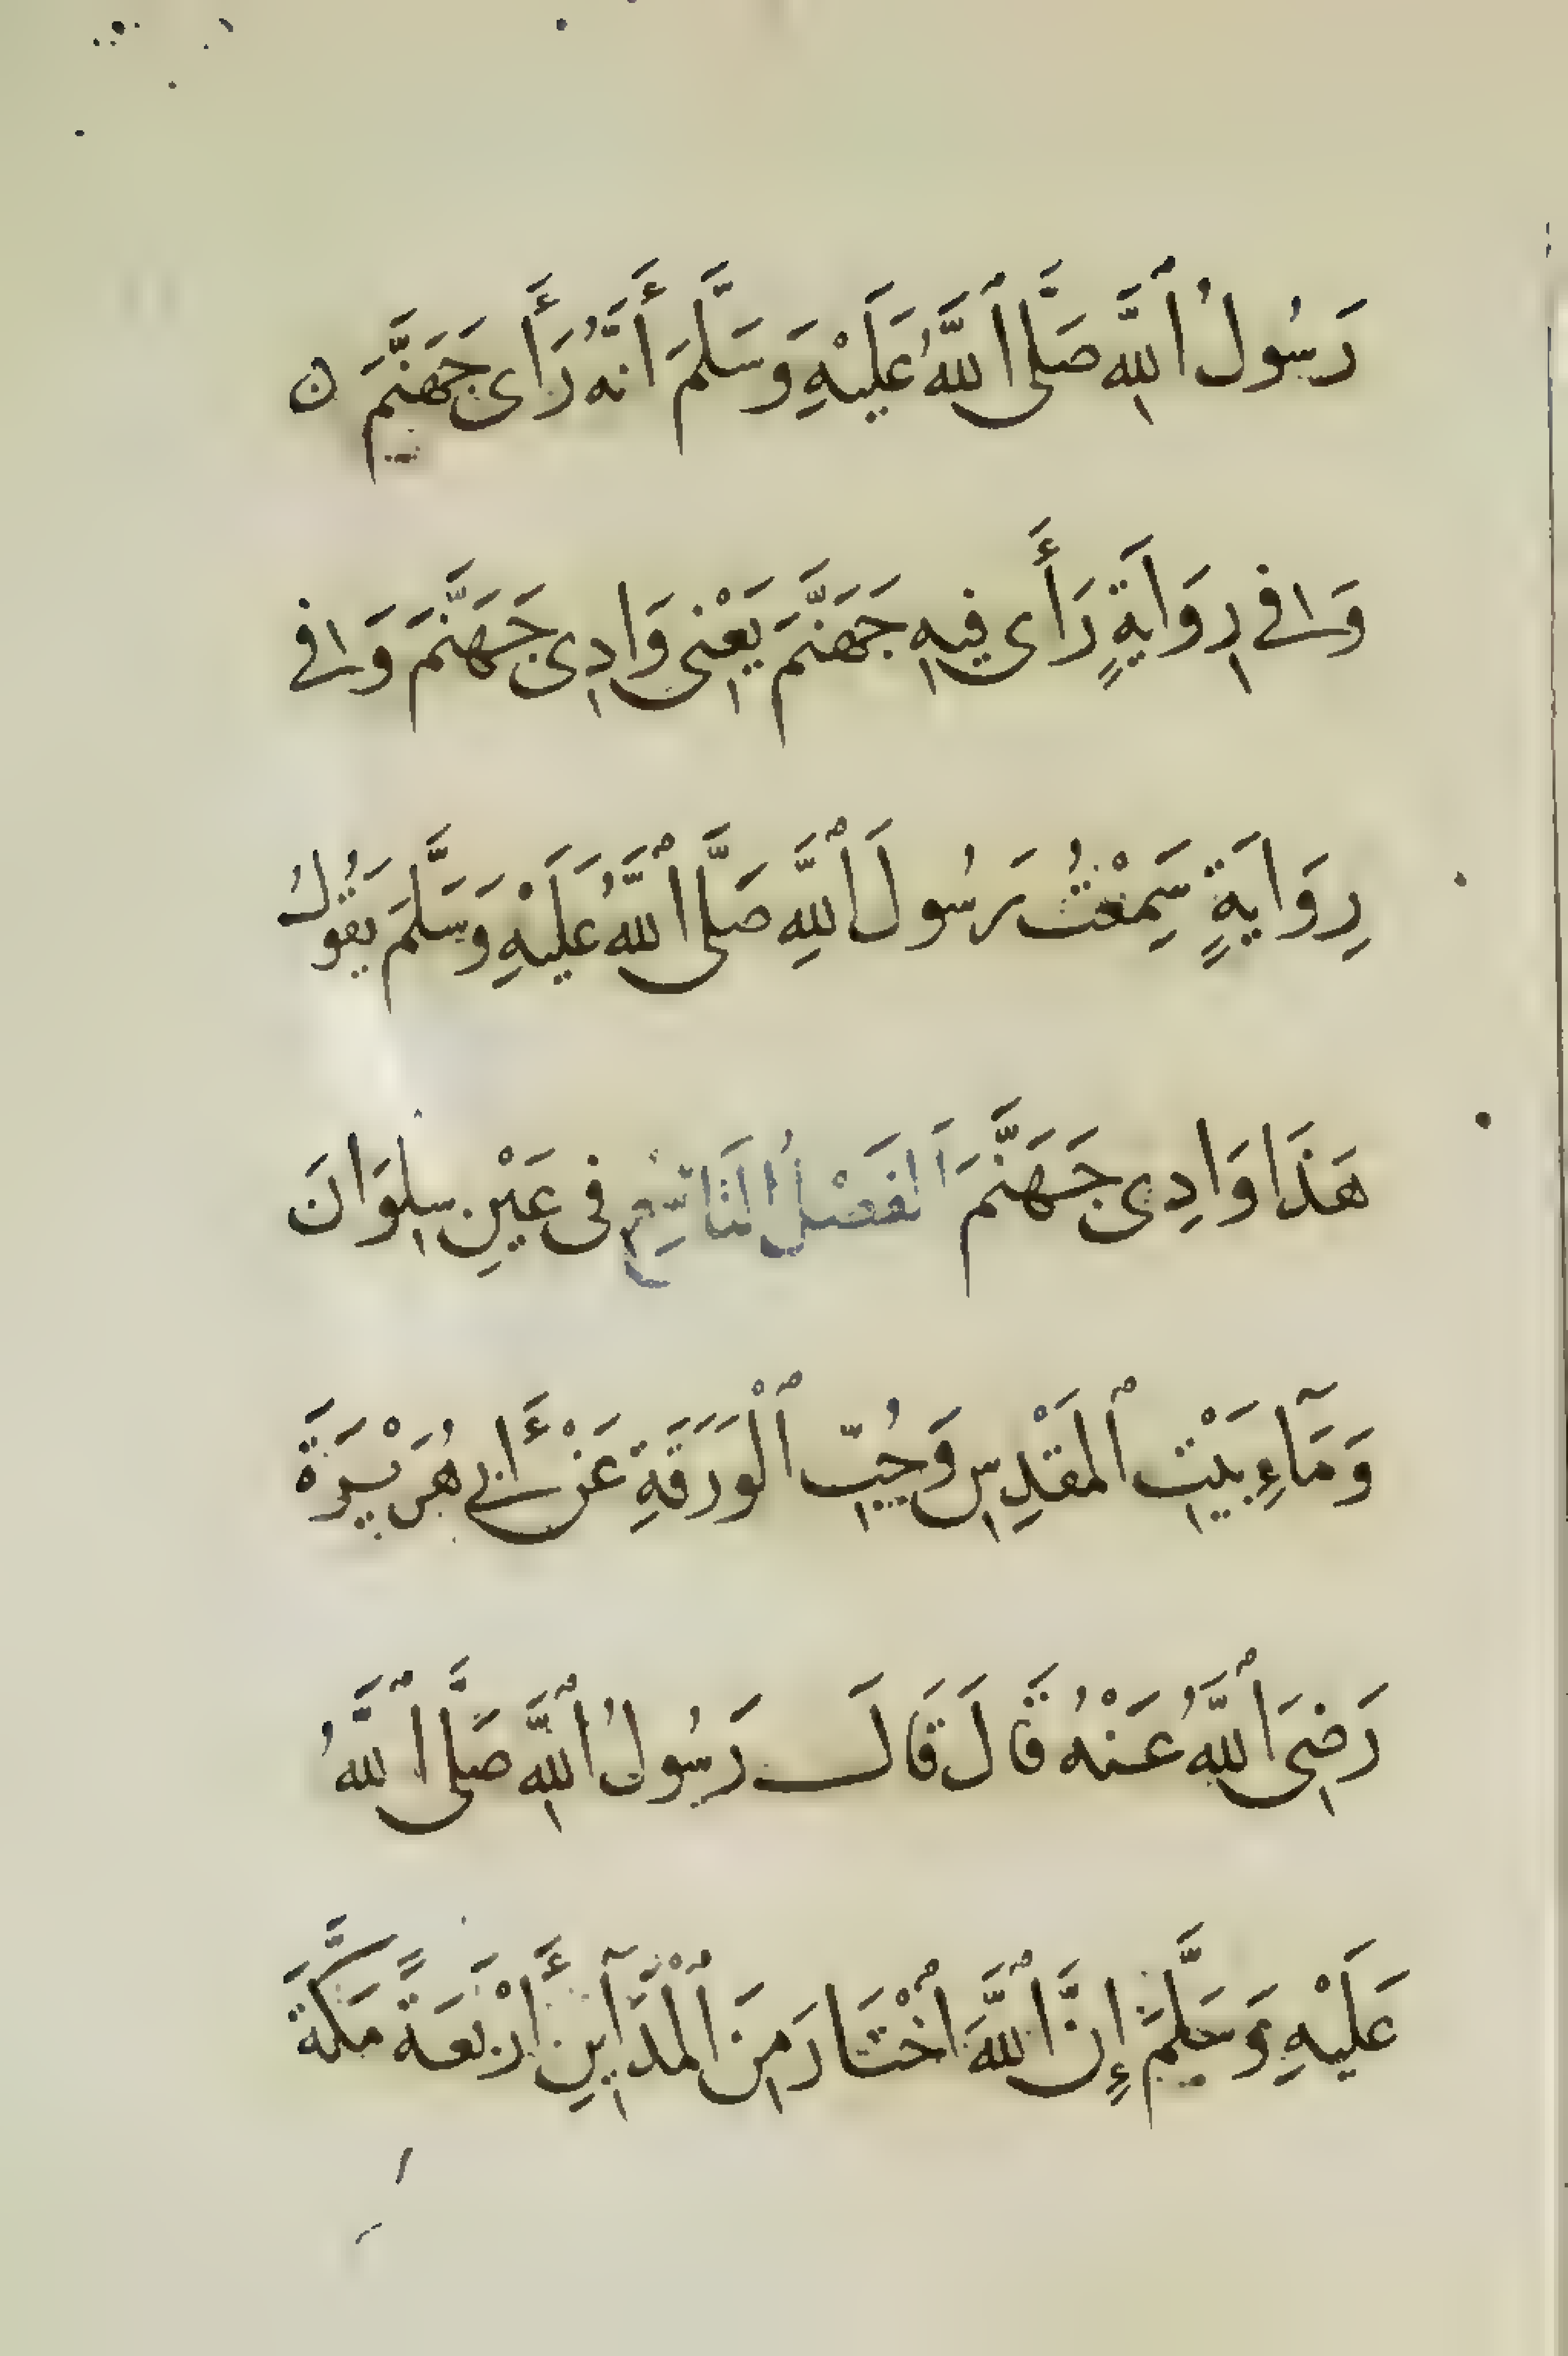 رَسُولُ ٱللَّهِ صَلَّى ٱللَّهُ عَلَيْهِ وَسَلَّمَ أَنَّهُ رَأَى جَهَنَّمَ ن
وَفِى رِوَايَةٍ رَأَى فِيهِ جَهَنَّمَ يَعْنِى وَادِى جَهَنَّمَ وَفِى
رِوَايَةٍ سَمِعْتُ رَسُولَ ٱللَّهِ صَلَّى ٱللَّهُ عَلَيْهِ وَسَلَّمَ يَقُولُ
هَذَا وَادِى جَهَنَّمَ اَلفَصْلُ التَّاسِعُ فِى عَيْنِ سِلوَانَ
وَمَآءِ بَيْتِ ٱلمَقْدِسِ وَجُبِّ ٱلْوَرَقَةِ عَنْ أَبِى هُرَيْرَةَ
رَضِىَ ٱللَّهُ عَنْهُ قَالَ قَالَ رَسُولُ ٱللَّهِ صَلَّى ٱللَّهُ
عَلَيْهِ وَسَلَّمَ إِنَّ ٱللَّهَ ٱخْتَارَ مِنَ ٱلْمَدَآيِنِ أَرْبَعَةً مَكَّةَ